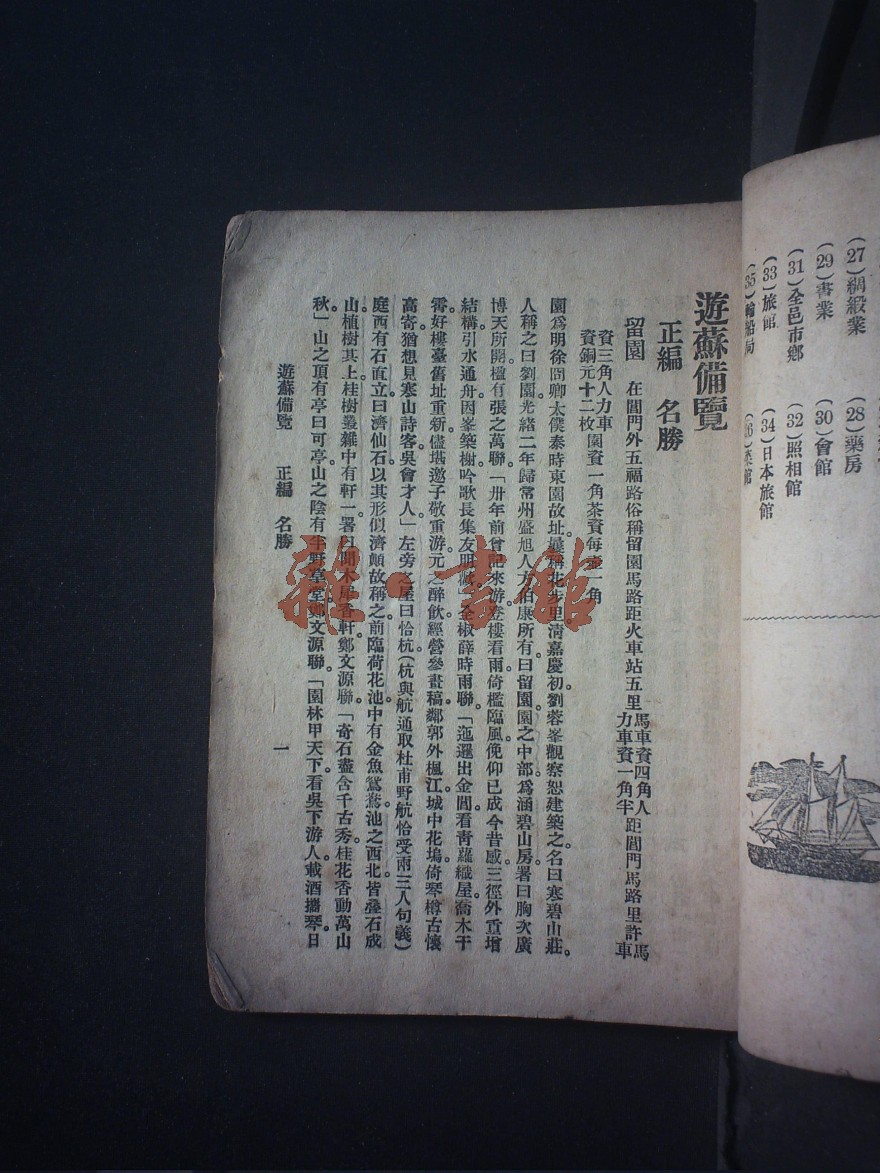 (27)綢緞業
(28)藥房
(29)書業
(30)會館
(31)全邑市鄉
(32)照相館
(33)旅館
(34)日本旅館
(35)輪船局
遊蘇備覽
正編 名勝
留園 在閶門外五福路俗稱留園馬路距火車站五里馬車資四角人力車資一角半距閶門馬路里許馬車
資三角人力車資銅元十二枚園資一角茶資每壺一角
園爲明徐冏卿太僕泰時東園故址㝡稱花步里清嘉慶初。劉蓉峯觀察恕建築之。名曰寒碧山莊。
人稱之曰劉園光緒二年歸常州盛旭人方伯康所有。曰留園園之中部。爲涵碧山房。署曰胸次廣
博天所開楹有張之萬聯。「卅年前曾記來游。登樓看雨。倚檻臨風。俛仰已成今昔感三徑外重增
結構。引水通舟。因峯築榭。吟歌長集友朋懽」全椒薛時雨聯。「迤邐出金閶。看青蘿織屋。喬木干
霄。好樓臺舊址重新。儘堪邀子敬重游。元之醉飲。經營參畫稿。鄰郭外楓江。城中花塢。倚琴樽古懷
高寄。猶想見寒山詩客。吳會才人」左旁之屋曰恰杭(杭與航通取杜甫野航恰受兩三人句義)
庭西有石直立。曰濟仙石以其形似濟顛故稱之。前臨荷花池。中有金魚鴛鴦。池之西北。皆疊石成
山。植樹其上。桂樹叢雜中有軒一。署曰聞木犀香軒。鄭文源聯。「奇石盡含千古秀。桂花香動萬山
秋」山之頂有亭曰可亭。山之陰有半野草堂。鄭文源聯「園林甲天下。看吳下游人。載酒攜琴。日
遊蘇備覽 正編 名勝
一
雜·書館